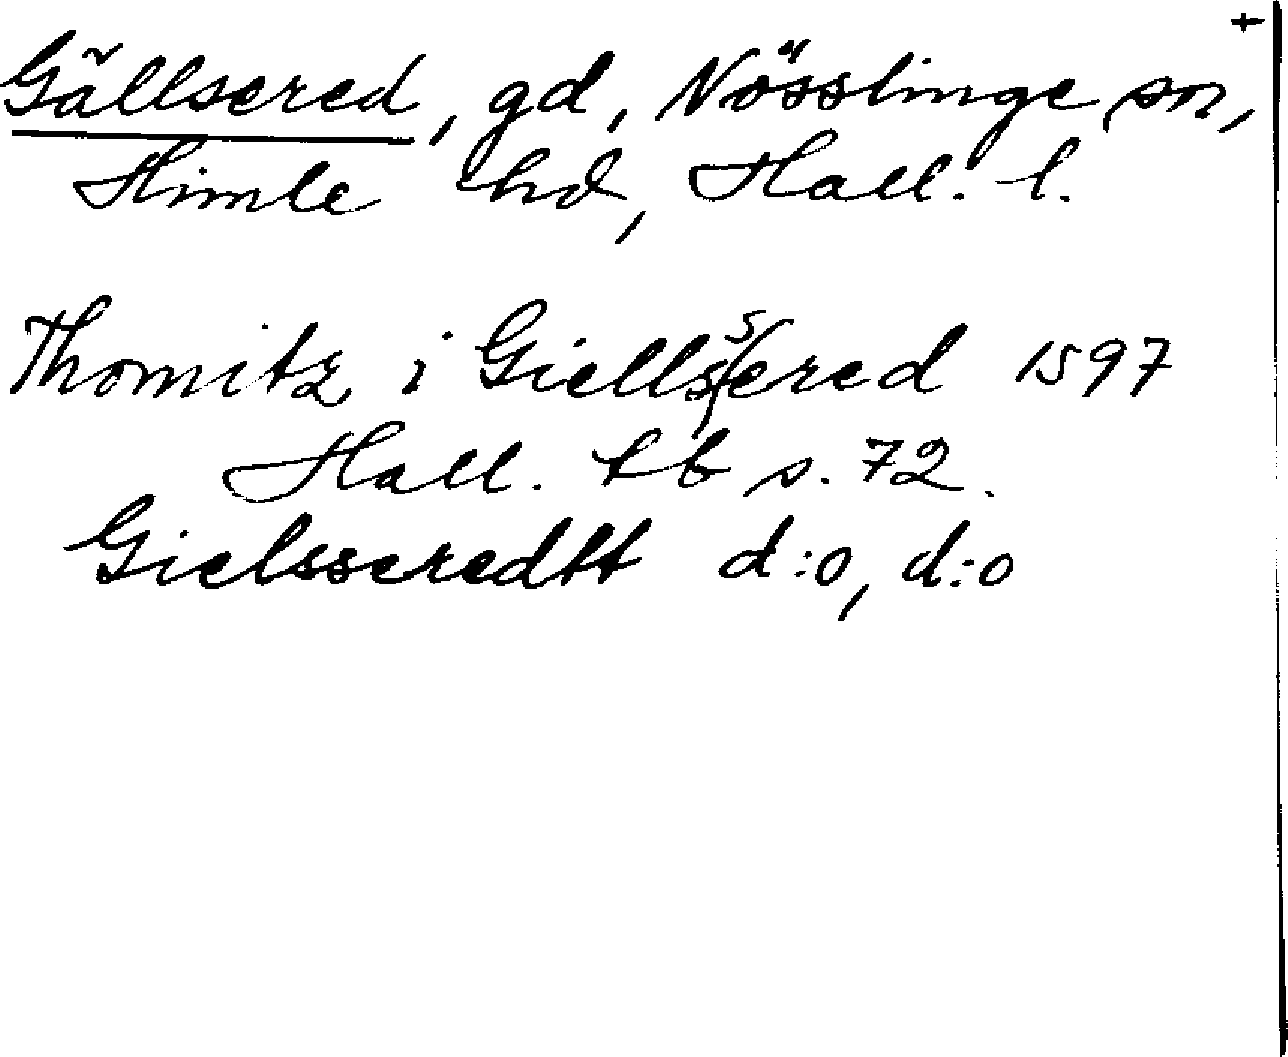 +
Gällsered, gd, Nösslinge sn,
Himle hd, Hall. l.
Thomitz i Giellssered 1597
Hall. tb s. 72.
Gielsseredtt d:o, d:o